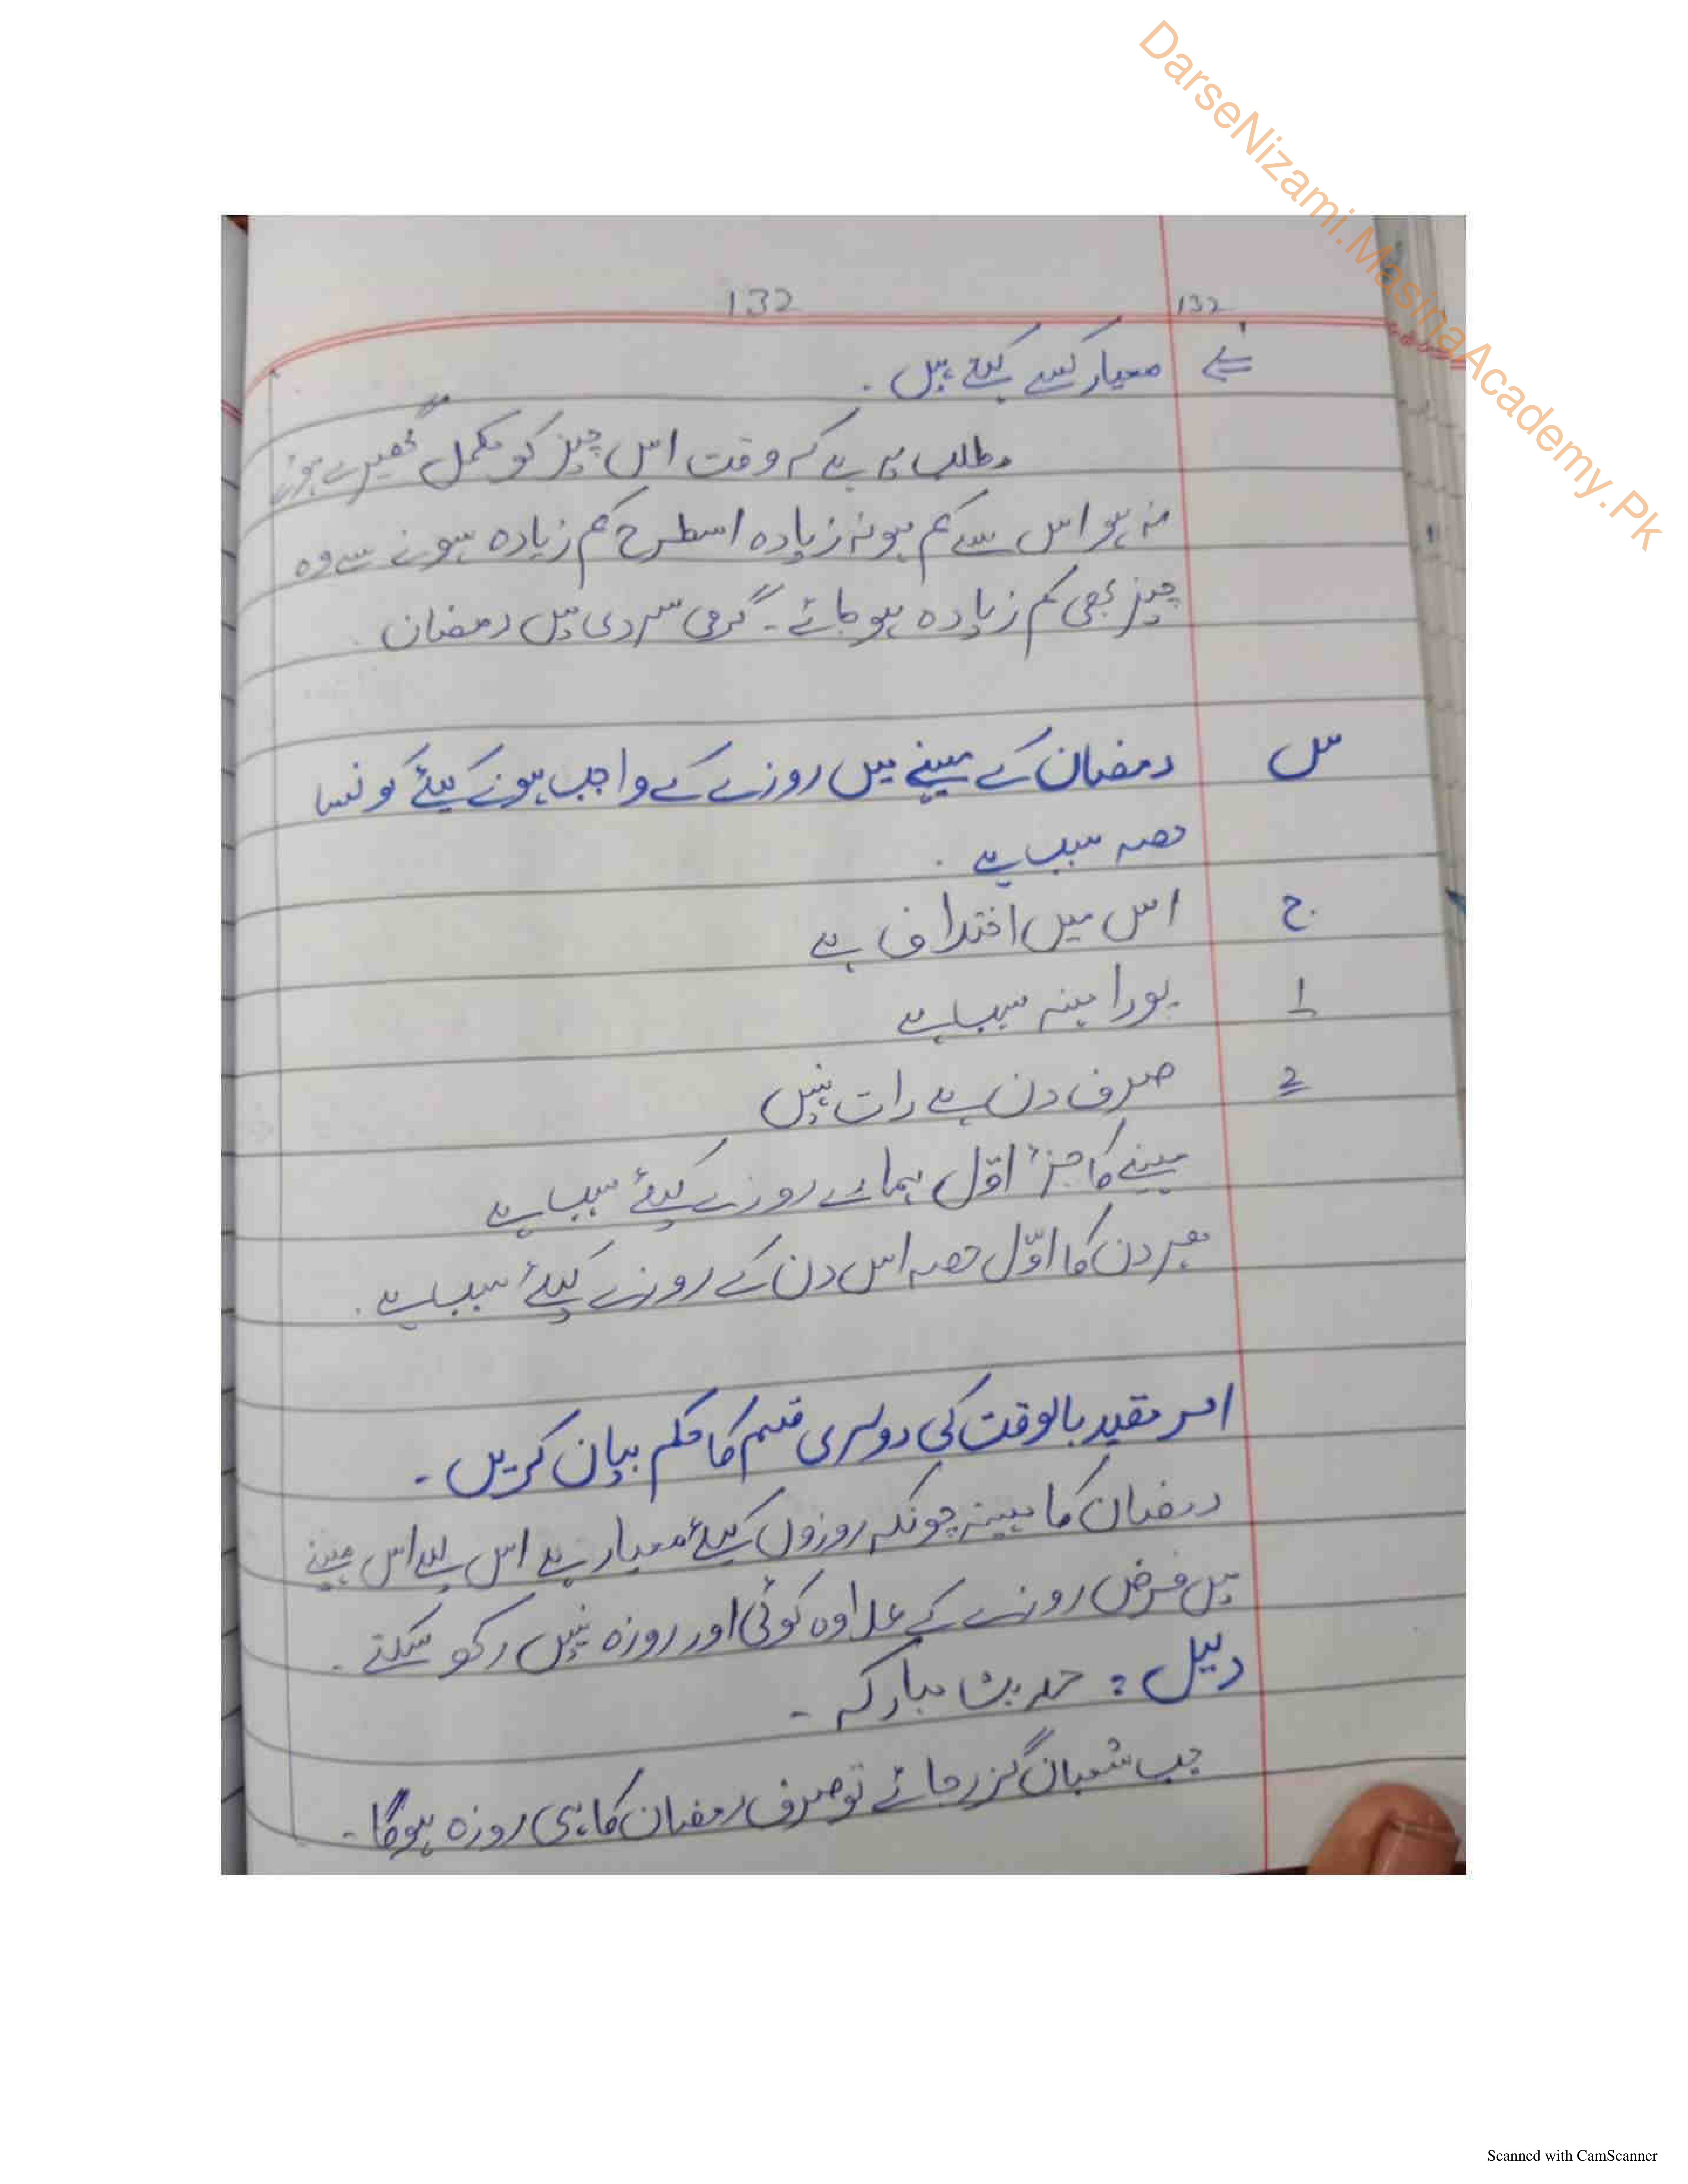 DarseNizami.MasinaAcademy.Pk
132 132
معیار کسے کہتے ہیں .
مطلب یہ ہے کہ وقت اس چیز کو مکمل گھیرے ہوئے
نہ ہو اس سے کم ہو نہ زیادہ اسطرح کم زیادہ ہونے سے وہ
چیز بھی کم زیادہ ہو جائے ۔ گرمی سردی میں رمضان
س رمضان کے مہینے میں روزے کے واجب ہونے کیلئے کونسا
حصہ سبب ہے .
ج اس میں اختلاف ہے
1 پورا مہینہ سبب ہے
2 صرف دن ہے رات نہیں
مہینے کا جزء اوّل ہمارے روزے کیلئے سبب ہے
ہر دن کا اوّل حصہ اس دن کے روزے کیلئے سبب ہے .
امر مقید بالوقت کی دوسری قسم کا حکم بیان کریں ۔
رمضان کا مہینہ چونکہ روزوں کیلئے معیار ہے اس لیے اس مہینے
میں فرض روزے کے علاوہ کوئی اور روزہ نہیں رکھ سکتے ۔
دلیل : حدیث مبارکہ ۔
جب شعبان گزر جائے تو صرف رمضان کا ہی روزہ ہوگا ۔
Scanned with CamScanner